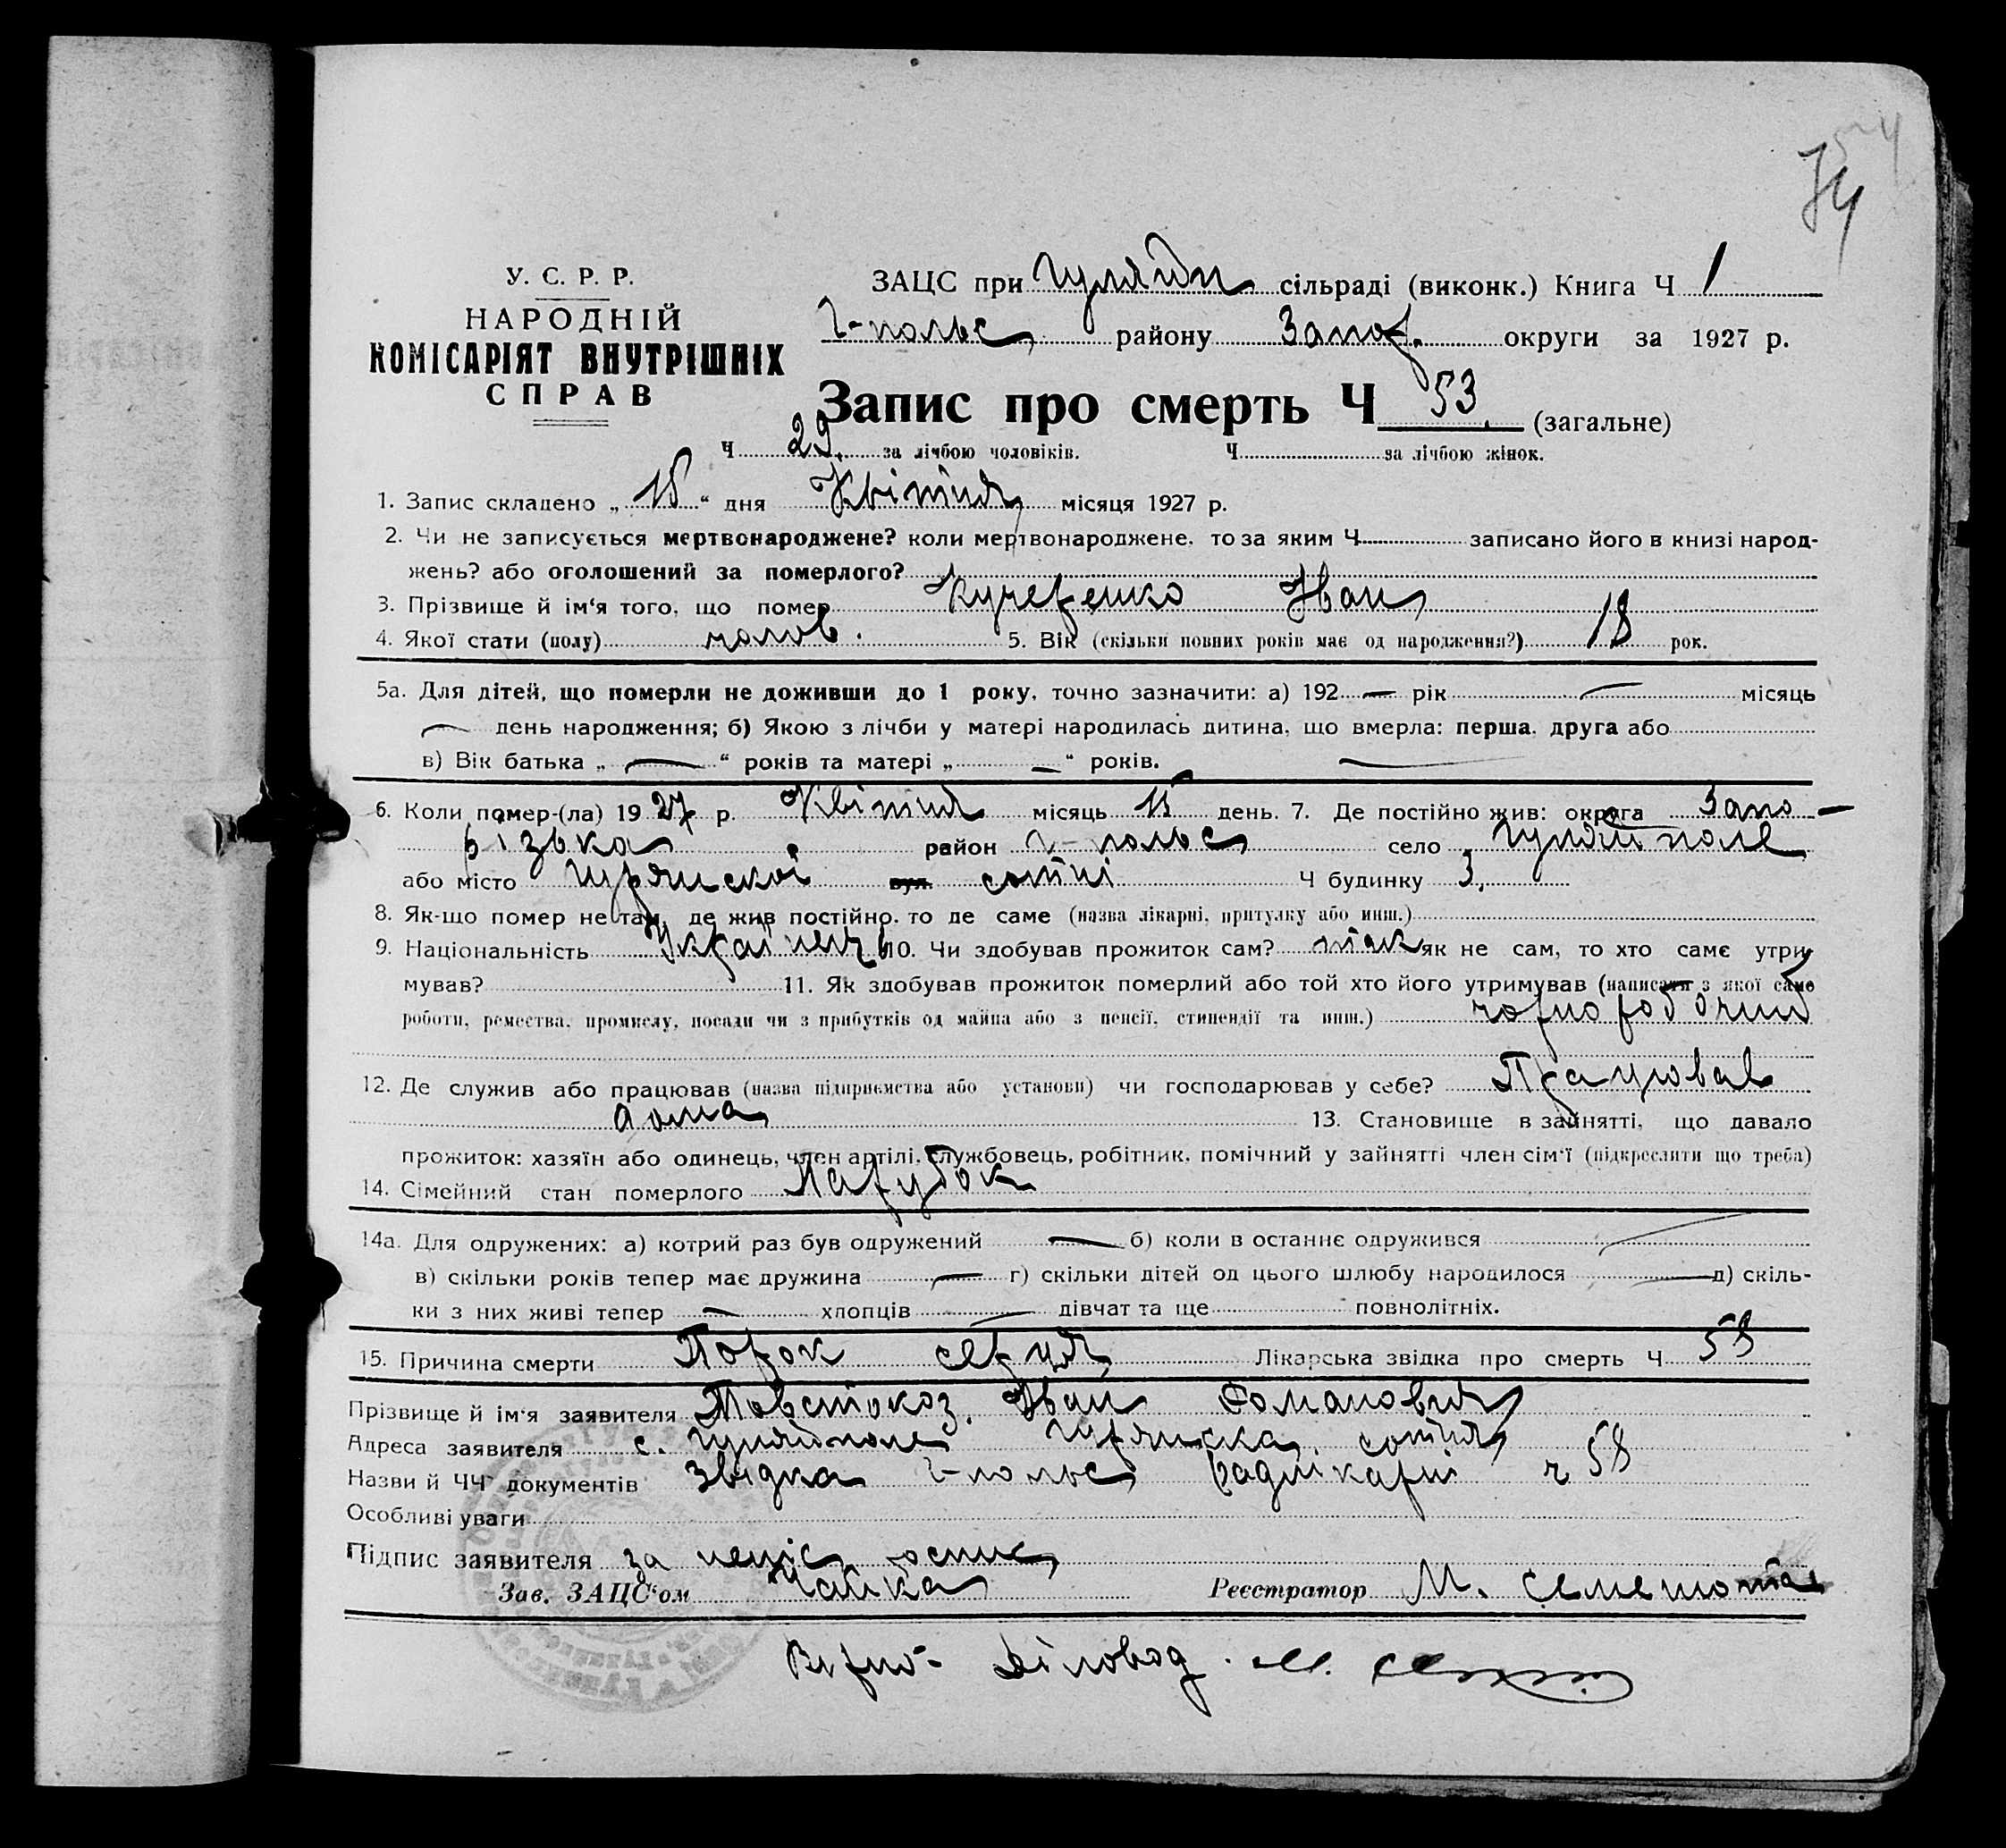 74
У. С. Р. Р.
НАРОДНІЙ
КОМІСАРІЯТ ВНУТРІШНІХ
СПРАВ
ЗАЦС при Гуляйп сільраді (виконк.) Книга Ч 1
Г-польс району Запор. округи за 1927 р.
Запис про смерть Ч 53 (загальне)
Ч 29 за лічбою чоловіків. Ч за лічбою жінок.
1. Запис складено „ 15 “ дня Квітня місяця 1927 р.
2. Чи не записується мертвонароджене? коли мертвонароджене, то за яким Ч записано його в книзі народ-
жень? або оголошений за померлого?
3. Прізвище й ім'я того, що помер Кучеренко Іван
4. Якої стати (полу) чолов. 5. Вік (скільки повних років має од народження?) 18 рок.
5а. Для дітей, що померли не доживши до 1 року, точно зазначити: а) 192 — рік — місяць
— день народження; б) Якою з лічби у матері народилась дитина, що вмерла: перша, друга або
в) Вік батька „ — “ років та матері „ — “ років. —
6. Коли помер-(ла) 1927 р. Квітня місяць 15 день. 7. Де постійно жив: округа Запо-
різька район Г-польс село Гуляйполе
або місто вул. сотні Ч будинку 3.
8. Як-що помер не там, де жив постійно, то де саме (назва лікарні, притулку або инш.)
9. Національність Українець 10. Чи здобував прожиток сам? так як не сам, то хто саме утри-
мував? 11. Як здобував прожиток померлий або той хто його утримував (написати з якої саме
роботи, ремества, промислу, посади чи з прибутків од майна або з пенсії, стипендії та инш.) чорноробочий
12. Де служив або працював (назва підприємства або установи) чи господарював у себе? Працював
дома 13. Становище в зайнятті, що давало
прожиток: хазяїн або одинець, член артілі, службовець, робітник, помічний у зайнятті член сім'ї (підкреслити що треба)
14. Сімейний стан померлого Парубок
14а. Для одружених: а) котрий раз був одружений — б) коли в останнє одружився —
в) скільки років тепер має дружина — г) скільки дітей од цього шлюбу народилося — д) скіль-
ки з них живі тепер — хлопців — дівчат та ще повнолітніх.
15. Причина смерти Порок серця Лікарська звідка про смерть Ч 58
Прізвище й ім'я заявителя Товстокоз Іван Романович
Адреса заявителя с. Гуляйполе сотня 58
Назви й ЧЧ документів Звідка Г-польс радлікарні ч 58
Особливі уваги
Підпис заявителя за непис
Зав. ЗАЦС'ом Чайка Реєстратор М.
Вірно: Діловод М.